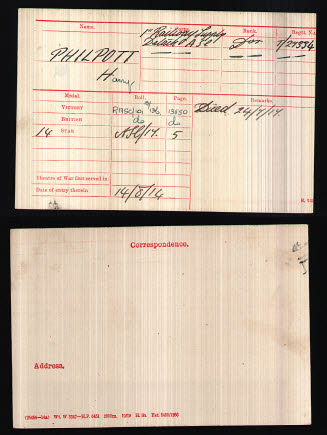 Name.
Corps.
Rank.
Regtl. No.
1st Railway Supply
Detach ASC
Dvr
T/27534
PHILPOTT
Harry
Medal.
Roll.
Page.
Remarks.
VICTORY
RASC/101
13650
Died 24/7/17.
BRITISH
do
do
14 STAR
ASC/17.
5
Theatre of War first served in
Date of entry therein
14/8/14
Correspondence.
Address.